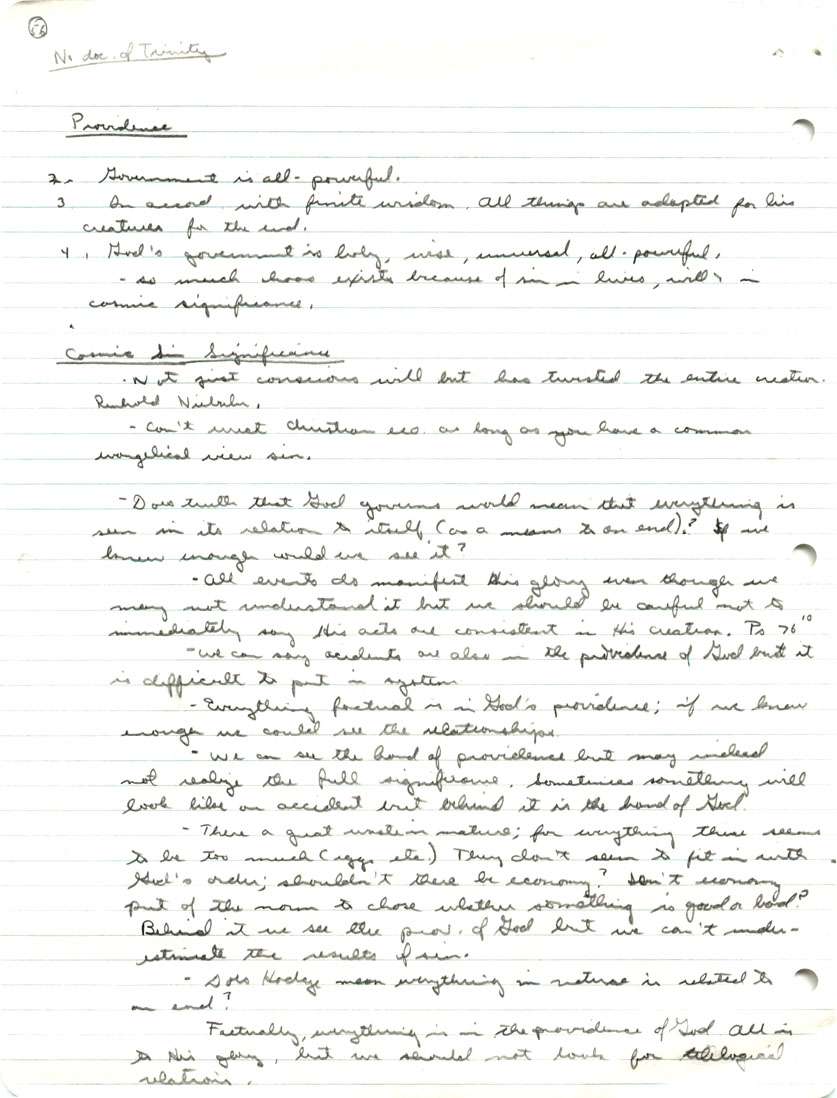 56
No doc. of Trinity
Providence
2. Government is all-powerful.
3. In accord with finite wisdom. All things are adapted for his
creatures for the end.
4. God's government is holy, wise, universal, all-powerful.
- so much chaos exists because of sin in lives, will, in
cosmic significance.
Cosmic Sin Significance
- Not just conscious will but has twisted the entire creation.
Reinhold Niebuhr.
- Can't meet Christian as long as you have a common
evangelical view sin.
- Does truth that God governs world mean that everything is
seen in its relation to itself (as a means to an end)? If we
knew enough would we see it?
- All events do manifest this glory even though we
may not understand it but we should be careful not to
immediately say His acts are consistent in His creation. Ps 76 10
- We can say accidents are also in the providence of God but it
is difficult to put in system
- Everything factual is in God's providence; if we knew
enough we could see the relationships.
- We can see the hand of providence but may indeed
not realize the full significance. Sometimes something will
look like an accident but behind it is the hand of God.
- There a great waste in nature; for everything there seems
to be too much (eggs etc.) They don't seem to fit in with
God's order; shouldn't there be economy? Isn't economy
part of the norm to chose whether something is good or bad?
Behind it we see the prov. of God but we can't under-
estimate the results of sin.
- Does Hodge mean everything in nature is related to
an end?
Factually, everything is in the providence of God. All is
to His glory, but we should not look for teleological
relations.